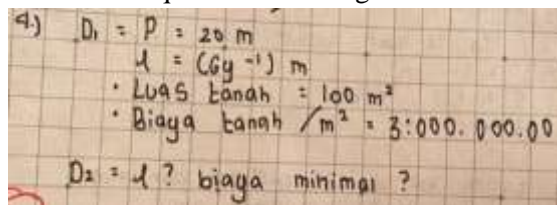 4.) D₁ = P = 20 m
l = (6y -1) m
• Luas tanah = 100 m²
• Biaya tanah /m² = 3:000.000.00
D₂ = l ? biaya minimal ?